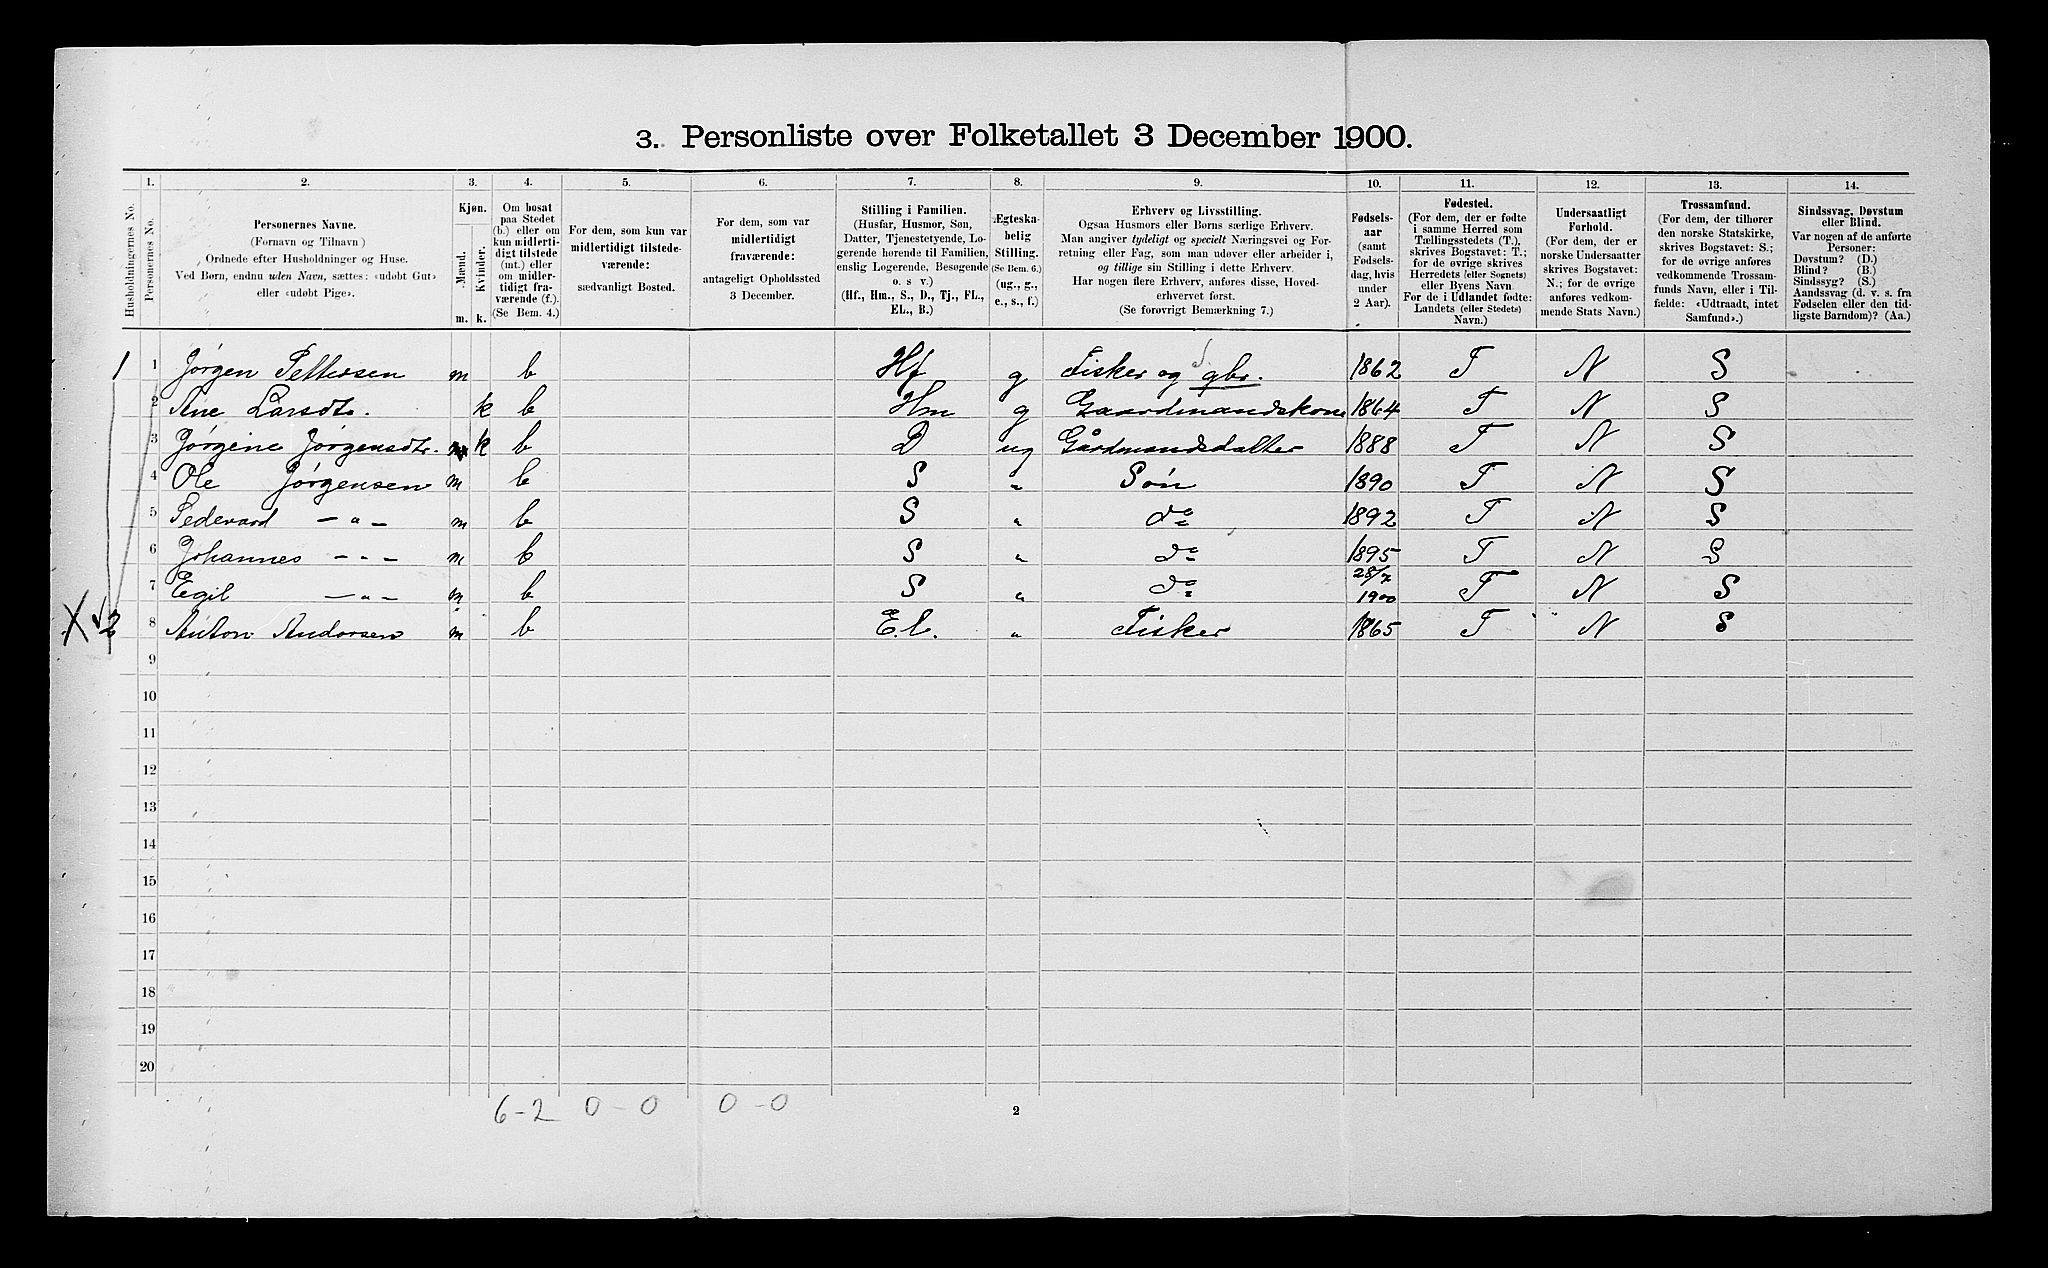 3. Personliste over Folketallet 3 December 1900.
Husholdningernes No.
1. Personernes No.
2. Personernes Navne. (Fornavn og Tilnavn) Ordnede efter Husholdninger og Huse. Ved Børn, endnu uden Navn, sættes: «udøbt Gut» eller «udøbt Pige».
3. Kjøn. Mænd. m. Kvinder. k.
4. Om bosat paa Stedet (b.) eller om kun midlertidigt tilstede (mt.) eller om midlertidigt fraværende (f.) (Se Bem. 4.)
5. For dem, som kun var midlertidigt tilstedeværende: sædvanligt Bosted.
6. For dem, som var midlertidigt fraværende: antageligt Opholdssted 3 December.
7. Stilling i Familien. (Husfar, Husmor, Søn, Datter, Tjenestetyende, Logerende hørende til Familien, enslig Logerende, Besøgende o. s v.) (Hf., Hm., S., D., Tj., FL., EL., B.)
8. Ægteskabelig Stilling. (Se Bem. 6.) (ug., g., e., s., f.)
9. Erhverv og Livsstilling. Ogsaa Husmors eller Børns særlige Erhverv. Man angiver tydeligt og specielt Næringsvei og Forretning eller Fag, som man udøver eller arbeider i, og tillige sin Stilling i dette Erhverv. Har nogen flere Erhverv, anføres disse, Hovederhvervet først. (Se forøvrigt Bemærkning 7.)
10. Fødselsaar (samt Fødselsdag, hvis under 2 Aar).
11. Fødested. (For dem, der er fødte i samme Herred som Tællingsstedets (T.), skrives Bogstavet: T.; for de øvrige skrives Herredets (eller Sognets) eller Byens Navn. For de i Udlandet fødte: Landets (eller Stedets) Navn.)
12. Undersaatligt Forhold. (For dem, der er norske Undersaatter skrives Bogstavet: N.; for de øvrige anføres vedkommende Stats Navn.)
13. Trossamfund. (For dem, der tilhører den norske Statskirke, skrives Bogstavet: S.; for de øvrige anføres vedkommende Trossamfunds Navn, eller i Tilfælde: «Udtraadt, intet Samfund».)
14. Sindssvag, Døvstum eller Blind. Var nogen af de anførte Personer: Døvstum? (D.) Blind? (B.) Sindssyg? (S.) Aandssvag (d. v. s. fra Fødselen eller den tidligste Barndom)? (Aa.)
1 1 Jørgen Pettersen m b Hf g Fisker og gbr. 1862 T N S
2 Ane Larsdtr. k b Hm g Gaardmandskone 1864 T N S
3 Jørgine Jørgensdtr. k b D ug Gårdmandsdatter 1888 T N S
4 Ole Jørgensen m b S " Søn 1890 T N S
5 Pedevard — " — m b S " do 1892 T N S
6 Johannes — " — m b S " do 1895 T N S
7 Egil — " — m b S " do 28/7 1900 T N S
X 2 8 Anton Andorsen m b E.l. " Fisker 1865 T N S
9
10
11
12
13
14
15
16
17
18
19
20
6-2 0-0 0-0
2